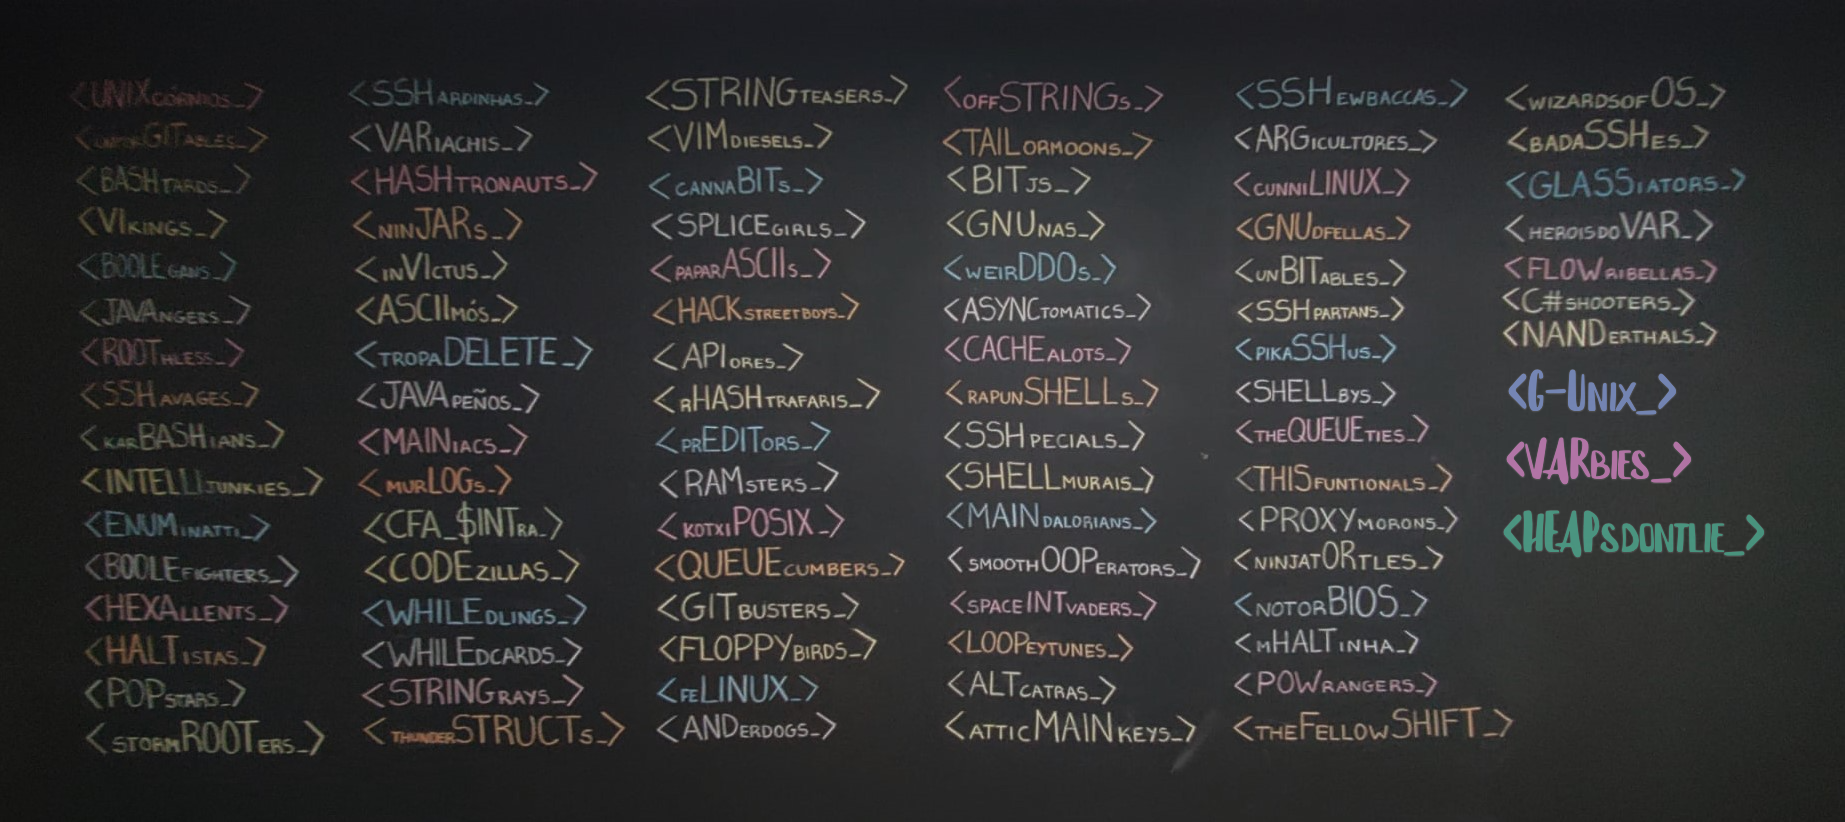 <UNIXCÓRNIOS_>
<UNFORGITABLES_>
<BASHTARDS_>
<VIKINGS_>
<BOOLEGANS_>
<JAVANGERS_>
<ROOTHLESS_>
<SSHAVAGES_>
<KARBASHIANS_>
<INTELLIJUNKIES_>
<ENUMINATTI_>
<BOOLEFIGHTERS_>
<HEXALLENTS_>
<HALTISTAS_>
<POPSTARS_>
<STORMROOTERS_>
<SSHARDINHAS_>
<VARIACHIS_>
<HASHTRONAUTS_>
<NINJARS_>
<INVICTUS_>
<ASCIIMÓS_>
<TROPADELETE_>
<JAVAPEÑOS_>
<MAINIACS_>
<MURLOGS_>
<CFA_$INTRA_>
<CODEZILLAS_>
<WHILEDLINGS_>
<WHILEDCARDS_>
<STRINGRAYS_>
<THUNDERSTRUCTS_>
<STRINGTEASERS_>
<VIMDIESELS_>
<CANNABITS_>
<SPLICEGIRLS_>
<PAPARASCIIS_>
<HACKSTREETBOYS_>
<APIORES_>
<RHASHTRAFARIS_>
<PREDITORS_>
<RAMSTERS_>
<KOTXIPOSIX_>
<QUEUECUMBERS_>
<GITBUSTERS_>
<FLOPPYBIRDS_>
<FELINUX_>
<ANDERDOGS_>
<OFFSTRINGS_>
<TAILORMOONS_>
<BITJS_>
<GNUNAS_>
<WEIRDDOS_>
<ASYNCTOMATICS_>
<CACHEALOTS_>
<RAPUNSHELLS_>
<SSHPECIALS_>
<SHELLMURAIS_>
<MAINDALORIANS_>
<SMOOTHOOPERATORS_>
<SPACEINTVADERS_>
<LOOPEYTUNES_>
<ALTCATRAS_>
<ATTICMAINKEYS_>
<SSHEWBACCAS_>
<ARGICULTORES_>
<CUNNILINUX_>
<GNUDFELLAS_>
<UNBITABLES_>
<SSHPARTANS_>
<PIKASSHUS_>
<SHELLBYS_>
<THEQUEUETIES_>
<THISFUNTIONALS_>
<PROXYMORONS_>
<NINJATORTLES_>
<NOTORBIOS_>
<MHALTINHA_>
<POWRANGERS_>
<THEFELLOWSHIFT_>
<WIZARDSOFOS_>
<BADASSHES_>
<GLASSIATORS_>
<HEROISDOVAR_>
<FLOWRIBELLAS_>
<C#SHOOTERS_>
<NANDERTHALS_>
<G-UNIX_>
<VARBIES_>
<HEAPSDONTLIE_>